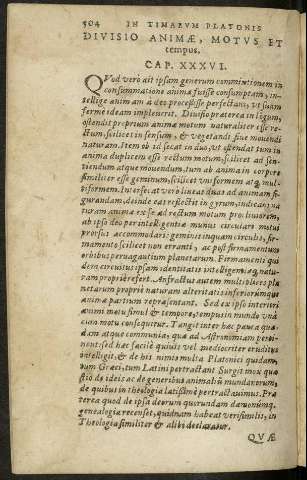 504 IN TIMAEVM PLATONIS
DIVISIO ANIMAE, MOTVS ET
tempus.
CAP. XXXVI.
QVod verò ait ipsam generum commixtionem in
consummatione animæ fuisse consumptam, in-
tellige animam a deo processisse perfectam, vt suam
fermè ideam impleuerit. Diuisio præterea in longum,
ostendit proprium animæ motum naturaliter esse re-
ctum, scilicet in sensum, & vegetandi siue mouendi
naturam. Item ob id secat in duo, vt ostendat tum in
anima duplicem esse rectum motum, scilicet ad sen-
tiendum atque mouendum, tum ab anima in corpore
similiter esse geminum, scilicet vniformem atq; mul-
tiformem. Inter secat verò lineas duas ad animam fi-
gurandam, deinde eas reflectit in gyrum, indicans na-
turam animæ ex se ad rectum motum procliuiorem,
ab ipso deo per intelligentiæ munus circulari motui
prorsus accommodari: geminis inquam circulis, fir-
mamento scilicet non erranti, ac post firmamentum
orbibus peruagantium planetarum. Firmamenti qui
dem circuitus ipsam identitatis intelligentiæq; natu-
ram propriè refert. Anfractus autem multiplices pla
netarum proprij naturam alteritatis inferiorumque
animæ partium repræsentant. Sed ex ipso interiori
animi motu simul & tempore, tempus in mundo vnà
cum motu consequitur. Tangit inter hæc pauca quæ-
dam atque communia, quæ ad Astronomiam perti-
nent: sed hæc facilè quiuis vel mediocriter eruditus
intelligit, & de his nimis multa Platonici quidam,
tum Græci, tum Latini pertractant. Surgit mox quæ-
stio de ideis ac de generibus animaliũ mundanorum,
de quibus in theologia latissimè pertractauimus. Præ
terea quod de ipsa deorum quorundam dæmonumq;
genealogia recenset, quidnam habeat verisimilis, in
Theologia similiter & alibi declaratur.
QVÆ